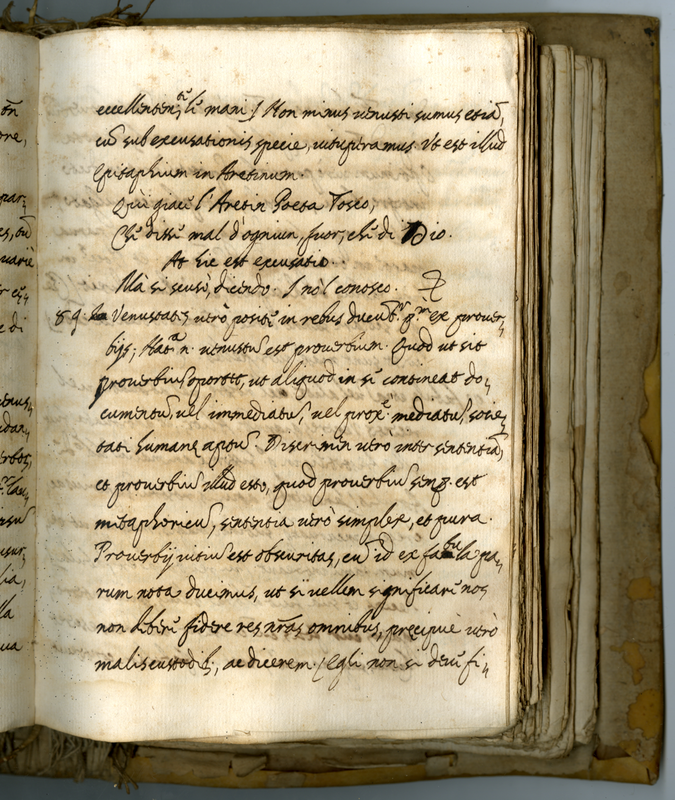 excellentem, li mani / Non minus uenusti sumus etiā,
cū sub excusationis specie, uituperamus. Vt est illud
Epitaphium in Aretinum.
Qui giace l'Aretin Poeta Tosco,
Che disse mal d'ogniun, fuor, che di Dio.
At hic est excusatio.
Mà si scusò, dicendo. I nõl conosco.
89. Venustatis uerò positę in rebus ducunt. ex prouer,
bijs; n. uenustū est prouerbium. Quod ut sit
prouerbiū oportet, ut aliquod in se contineat do,
cumentū, uel immediatū, uel prox.ᵉ mediatū, socie,
tati humanę aptū. Discrimen uerò inter sententiā,
et prouerbiū illud esto, quod prouerbiū semp. est
metaphoricū, sententia uerò simplex, et pura.
Prouerbij uitiū est obscuritas, cū id ex fabula pa,
rum nota ducimus, ut si uellem significare nos
non liberè fidere res nr̃as omnibus, pręcipuè uerò
malis custodib., ac dicerem. / Egli non si deue fi,
ōn
one,
par,
es, tū
uariè
e di
enus,
idan,
sur,
lia,
lla
ua